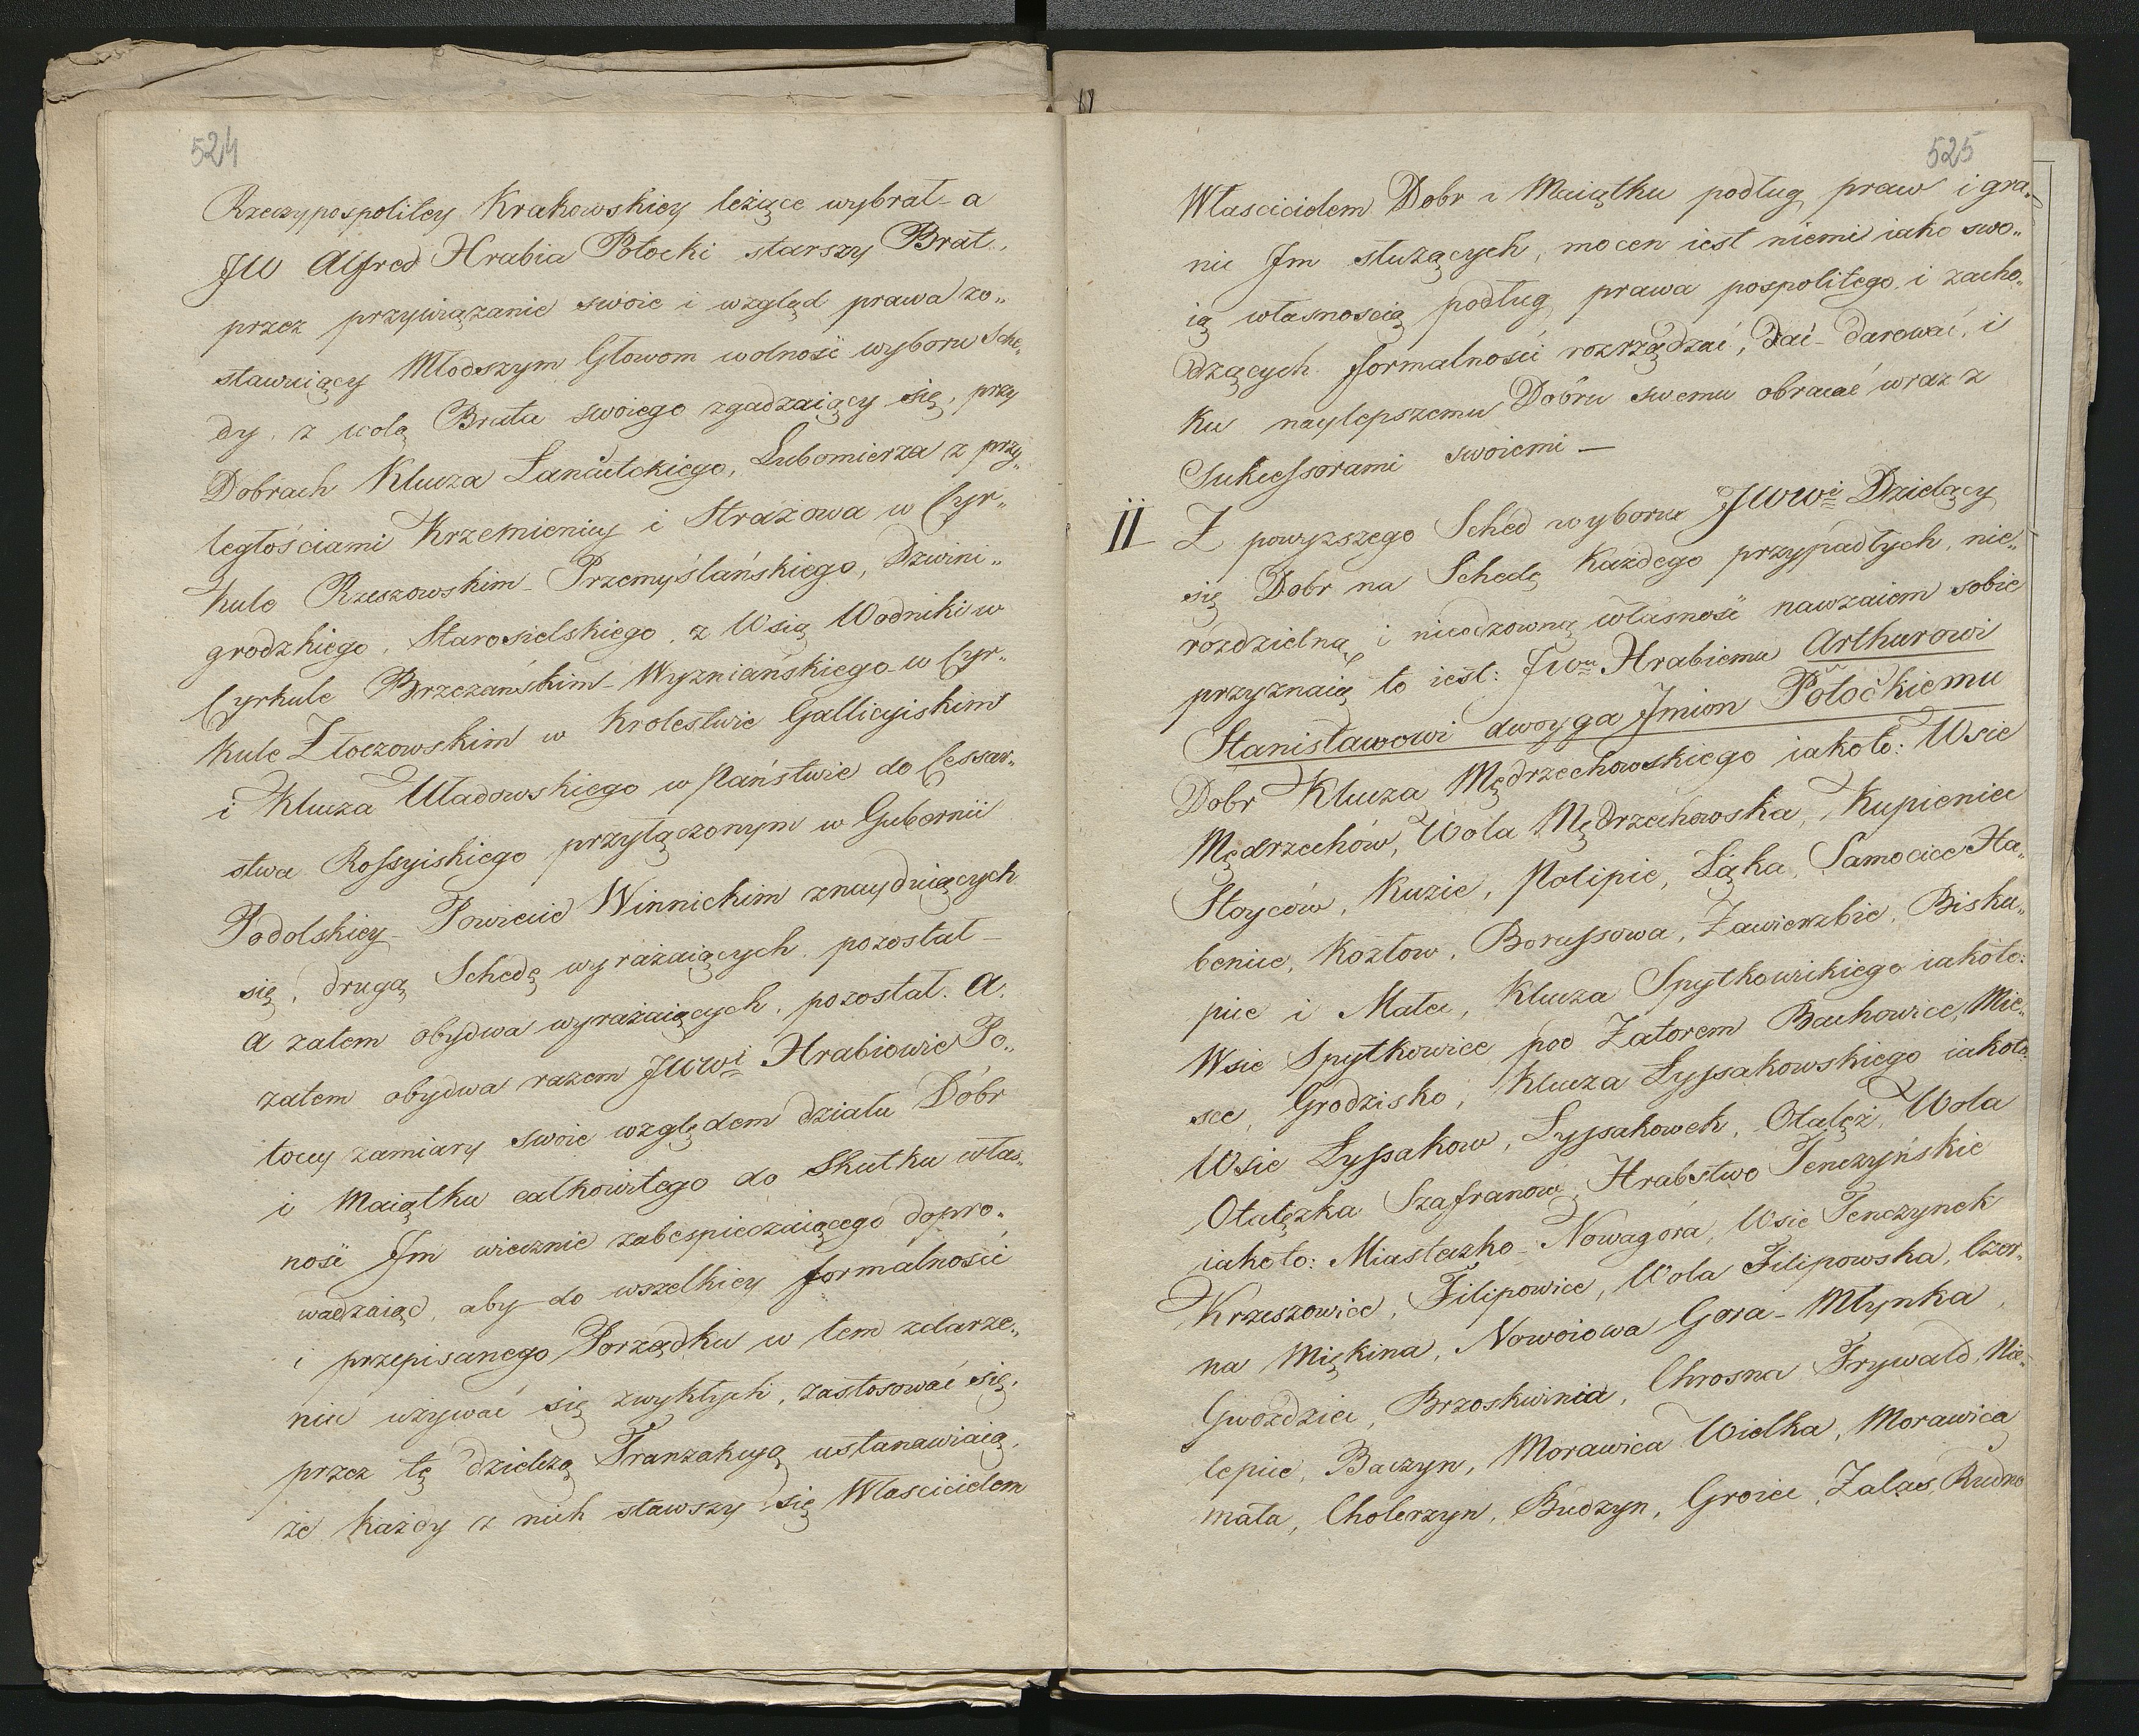 524
Rzeczypospolitey Krakowskiey leżące wybrał - a
JW Alfred Hrabia Potocki starszy Brat,
przez przywiązanie swoie i wzgląd prawa zo„
stawuiący Młodszym Głowom wolność wyboru Sche„
dy, z wolą Brata swoiego zgadzaiący się, przy
Dobrach Klucza Łańcutckiego, Lubomierza z przy„
ległościami Krzemienicy i Strażowa w Cyr„
kule Rzeszowskim - Przemyślańskiego, Dzwini„
grodzkiego, Starosielskiego, z Wsią Wodniki w
Cyrkule Brzezańskim - Wyzniańskiego - w Cyr„
kule Złoczowskim w Krolestwie Gallicyiskim
i Klucza Uładowskiego w Państwie do Cessar„
stwa Rossyiskiego przyłączonym w Gubernii
Podolskiey - Powiecie Winnickim znayduiących
się, drugą Schedę wyrażaiących, pozostał -
a zatem obydwa wyrażaiących, pozostał. a.
zatem obydwa razem JWWi Hrabiowie Po„
toccy zamiary swoie względem działu Dóbr
i Maiątku całkowitego do Skutku włas„
ność Im wiecznie zabespieczaiącego dopro„
wadzaiąc, aby do wszelkiey formalności
i przepisanego Porządku w tem zdarze„
niu używać się zwykłych, zastosować się,
przez tę dzielczą Tranzakcyą ustanawiaią,
że każdy z nich stawszy się Własciecielem
525
Własciecielem Dobr i Maiątku podług praw i gra„
nic Im służących, mocen iest niemi iako swo„
ią własnoscią podług prawa pospolitego i zacho„
dzących formalności rozrządzać, dać - darować, i
ku naylepszemu Dobru swemu obracać wraz z
Sukcessorami swoiemi —
II Z powyzszego Sched wyboru JWWi Dzielący
się Dobr na Schedę Każdego przypadłych, nie„
rozdzielną i nieodzowną własność nawzaiem sobie
przyznaią to iest: JWu Hrabiemu Arthurowi
Stanisławowi dwoyga Imion Potockiemu
Dobr Klucza Mędrzechowskiego iakoto: Wsie
Mędrzechów, Wola Mędrzechowska, Kupienice
Słoyców, Kuzie, Polipie, Łąka, Samocice Ha„
benice, Kozłow, Borussowa, Zawierzbie, Bisku„
pice i Małec, Klucza Spytkowickiego iakoto:
Wsie Spytkowice pod Zatorem Bachowice, Mie„
sce, Grodzisko, Klucza Łyssakowskiego iakoto:
Wsie Łyssakow, Łyssakowek, Otałęż, Wola
Otałęzka Szafranow, Hrabstwo Tenczyńskie
iakoto: Miasteczko - Nowagóra, Wsie Tenczynek
Krzeszowice, Filipowice, Wola Filipowska, Czer„
na Miękina, Nowoiowa Gora - Młynka,
Gwoździec, Brzoskwinia, Chrosna Frywald, Nie„
lepice, Baczyn, Morawica Wielka, Morawica
mała, Cholerzyn, Budzyn, Groice, Zalas, Rudno